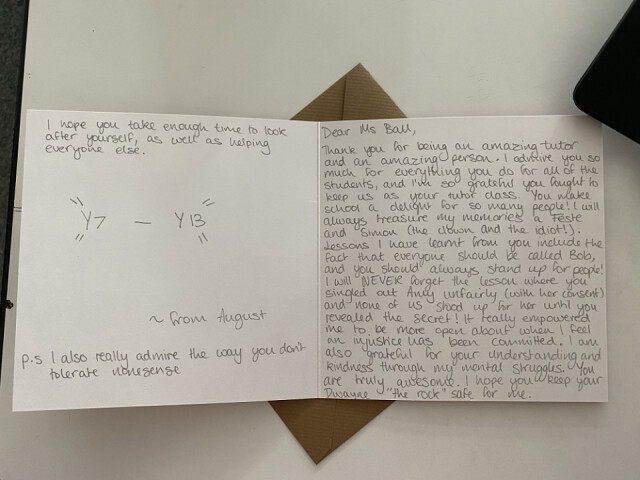 Dear Ms Ball,
Thank you for being an amazing tutor
and an amazing person. I admire you so
much for everything you do for all of the
students, and I'm so grateful you fought to
keep us as your tutor class. You make
school a delight for so many people! I will
always treasure my memories a Feste
and Simon (the clown and the idiot!).
Lessons I have learnt from you include the
fact that everyone should be called Bob,
and you should always stand up for people!
I will NEVER forget the lesson where you
singled out Amy unfairly (with her consent)
and none of us stood up for her until you
revealed the secret! It really empowered
me to be more open about when I feel
an injustice has been committed. I am
also grateful for your understanding and
kindness through my mental struggles. You
are truly awesome. I hope you keep your
Dwayne "the rock" safe for me.
I hope you take enough time to look
after yourself, as well as helping
everyone else.
Y7 — Y13
~ from August
p.s I also really admire the way you don't
tolerate nonesense